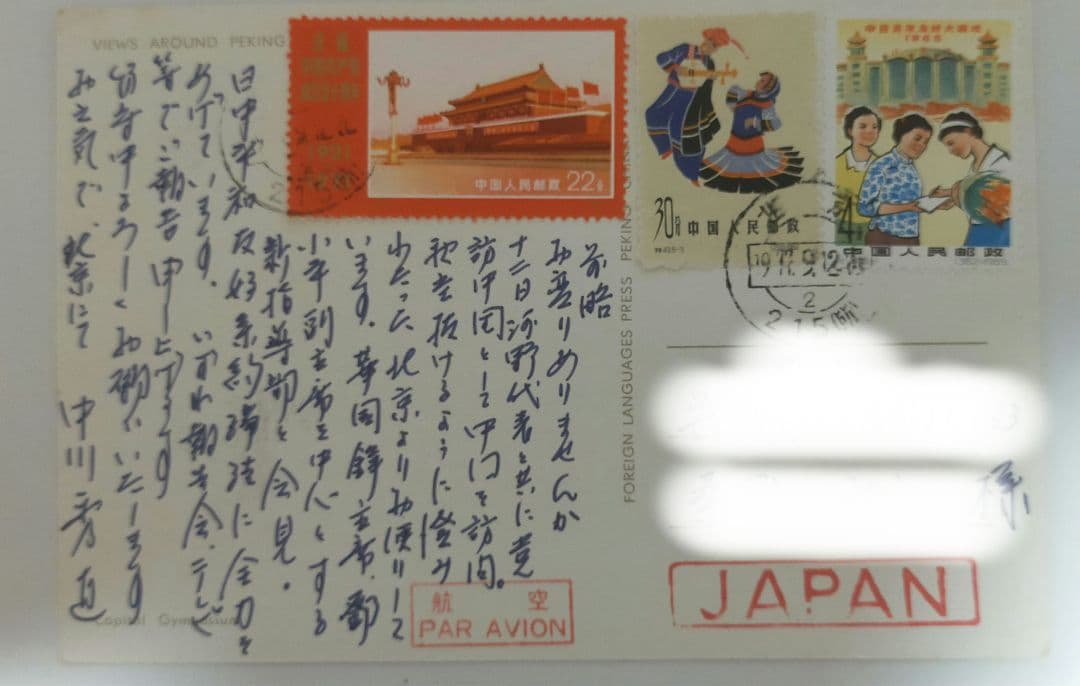 VIEWS AROUND PEKING
1921
中国人民邮政 22分
30分 中国人民邮政
1965
4
中国人民邮政
19 77.9.12
2
FOREIGN LANGUAGES PRESS PEKING CHINA
前略
お変りありませんか
十二日河野代表と共に党
訪中団として中国を訪問。
秋空抜けるように澄み
わたった北京よりお便りして
います。華国鋒主席、鄧
小平副主席を中心とする
新指導部と会見。
日中平和友好条約締結に全力を
あげています。いずれ報告会、テレビ
等でご報告申し上げます
留守中よろしくお願いいたします
お元気で、北京にて 中川秀直
様
航空
PAR AVION
JAPAN
Capital Gymnasium